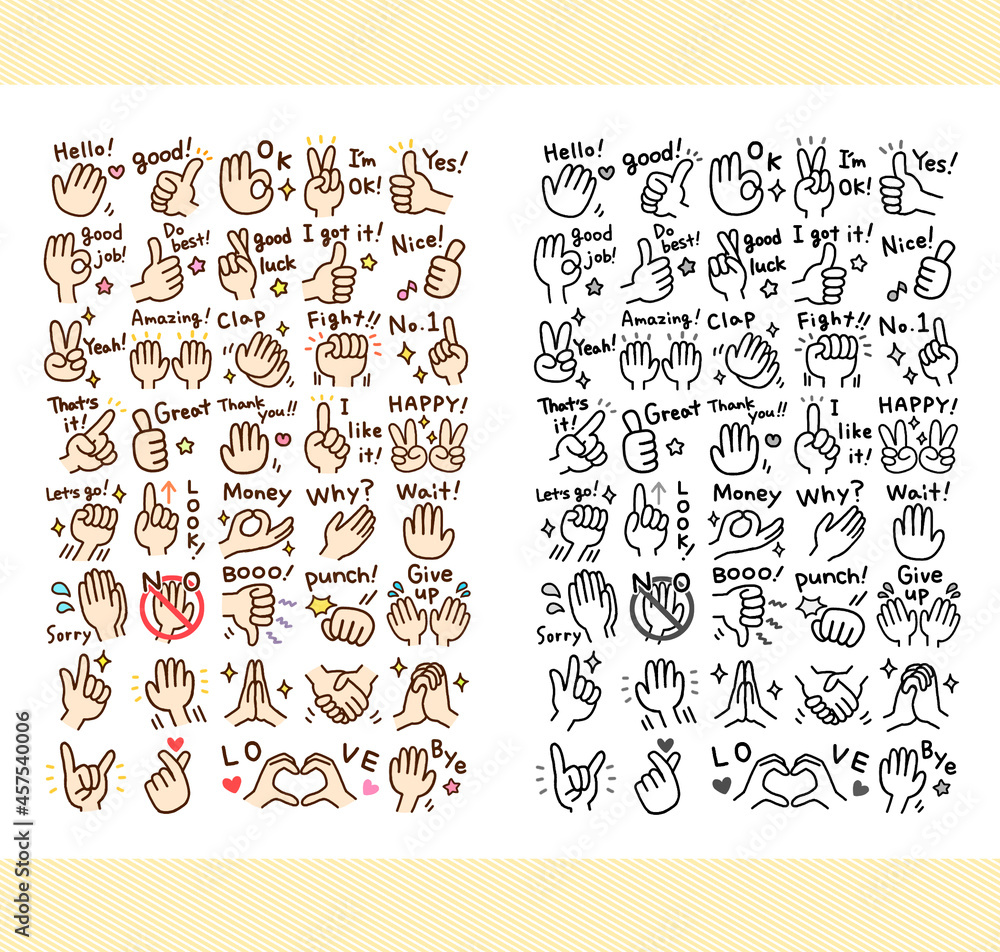 Hello!
good!
OK
I'm
OK!
Yes!
good
job!
Do
best!
good
luck
I got it!
Nice!
Yeah!
Amazing!
Clap
Fight!!
No.1
That's
it!
Great
Thank
you!!
I
like
it!
HAPPY!
Let's go!
LOOK!
Money
Why?
Wait!
Sorry
NO
BOOO!
punch!
Give
up
LOVE
Bye
Hello!
good!
OK
I'm
OK!
Yes!
good
job!
Do
best!
good
luck
I got it!
Nice!
Yeah!
Amazing!
Clap
Fight!!
No.1
That's
it!
Great
Thank
you!!
I
like
it!
HAPPY!
Let's go!
LOOK!
Money
Why?
Wait!
Sorry
NO
BOOO!
punch!
Give
up
LOVE
Bye
Adobe Stock | #457540006